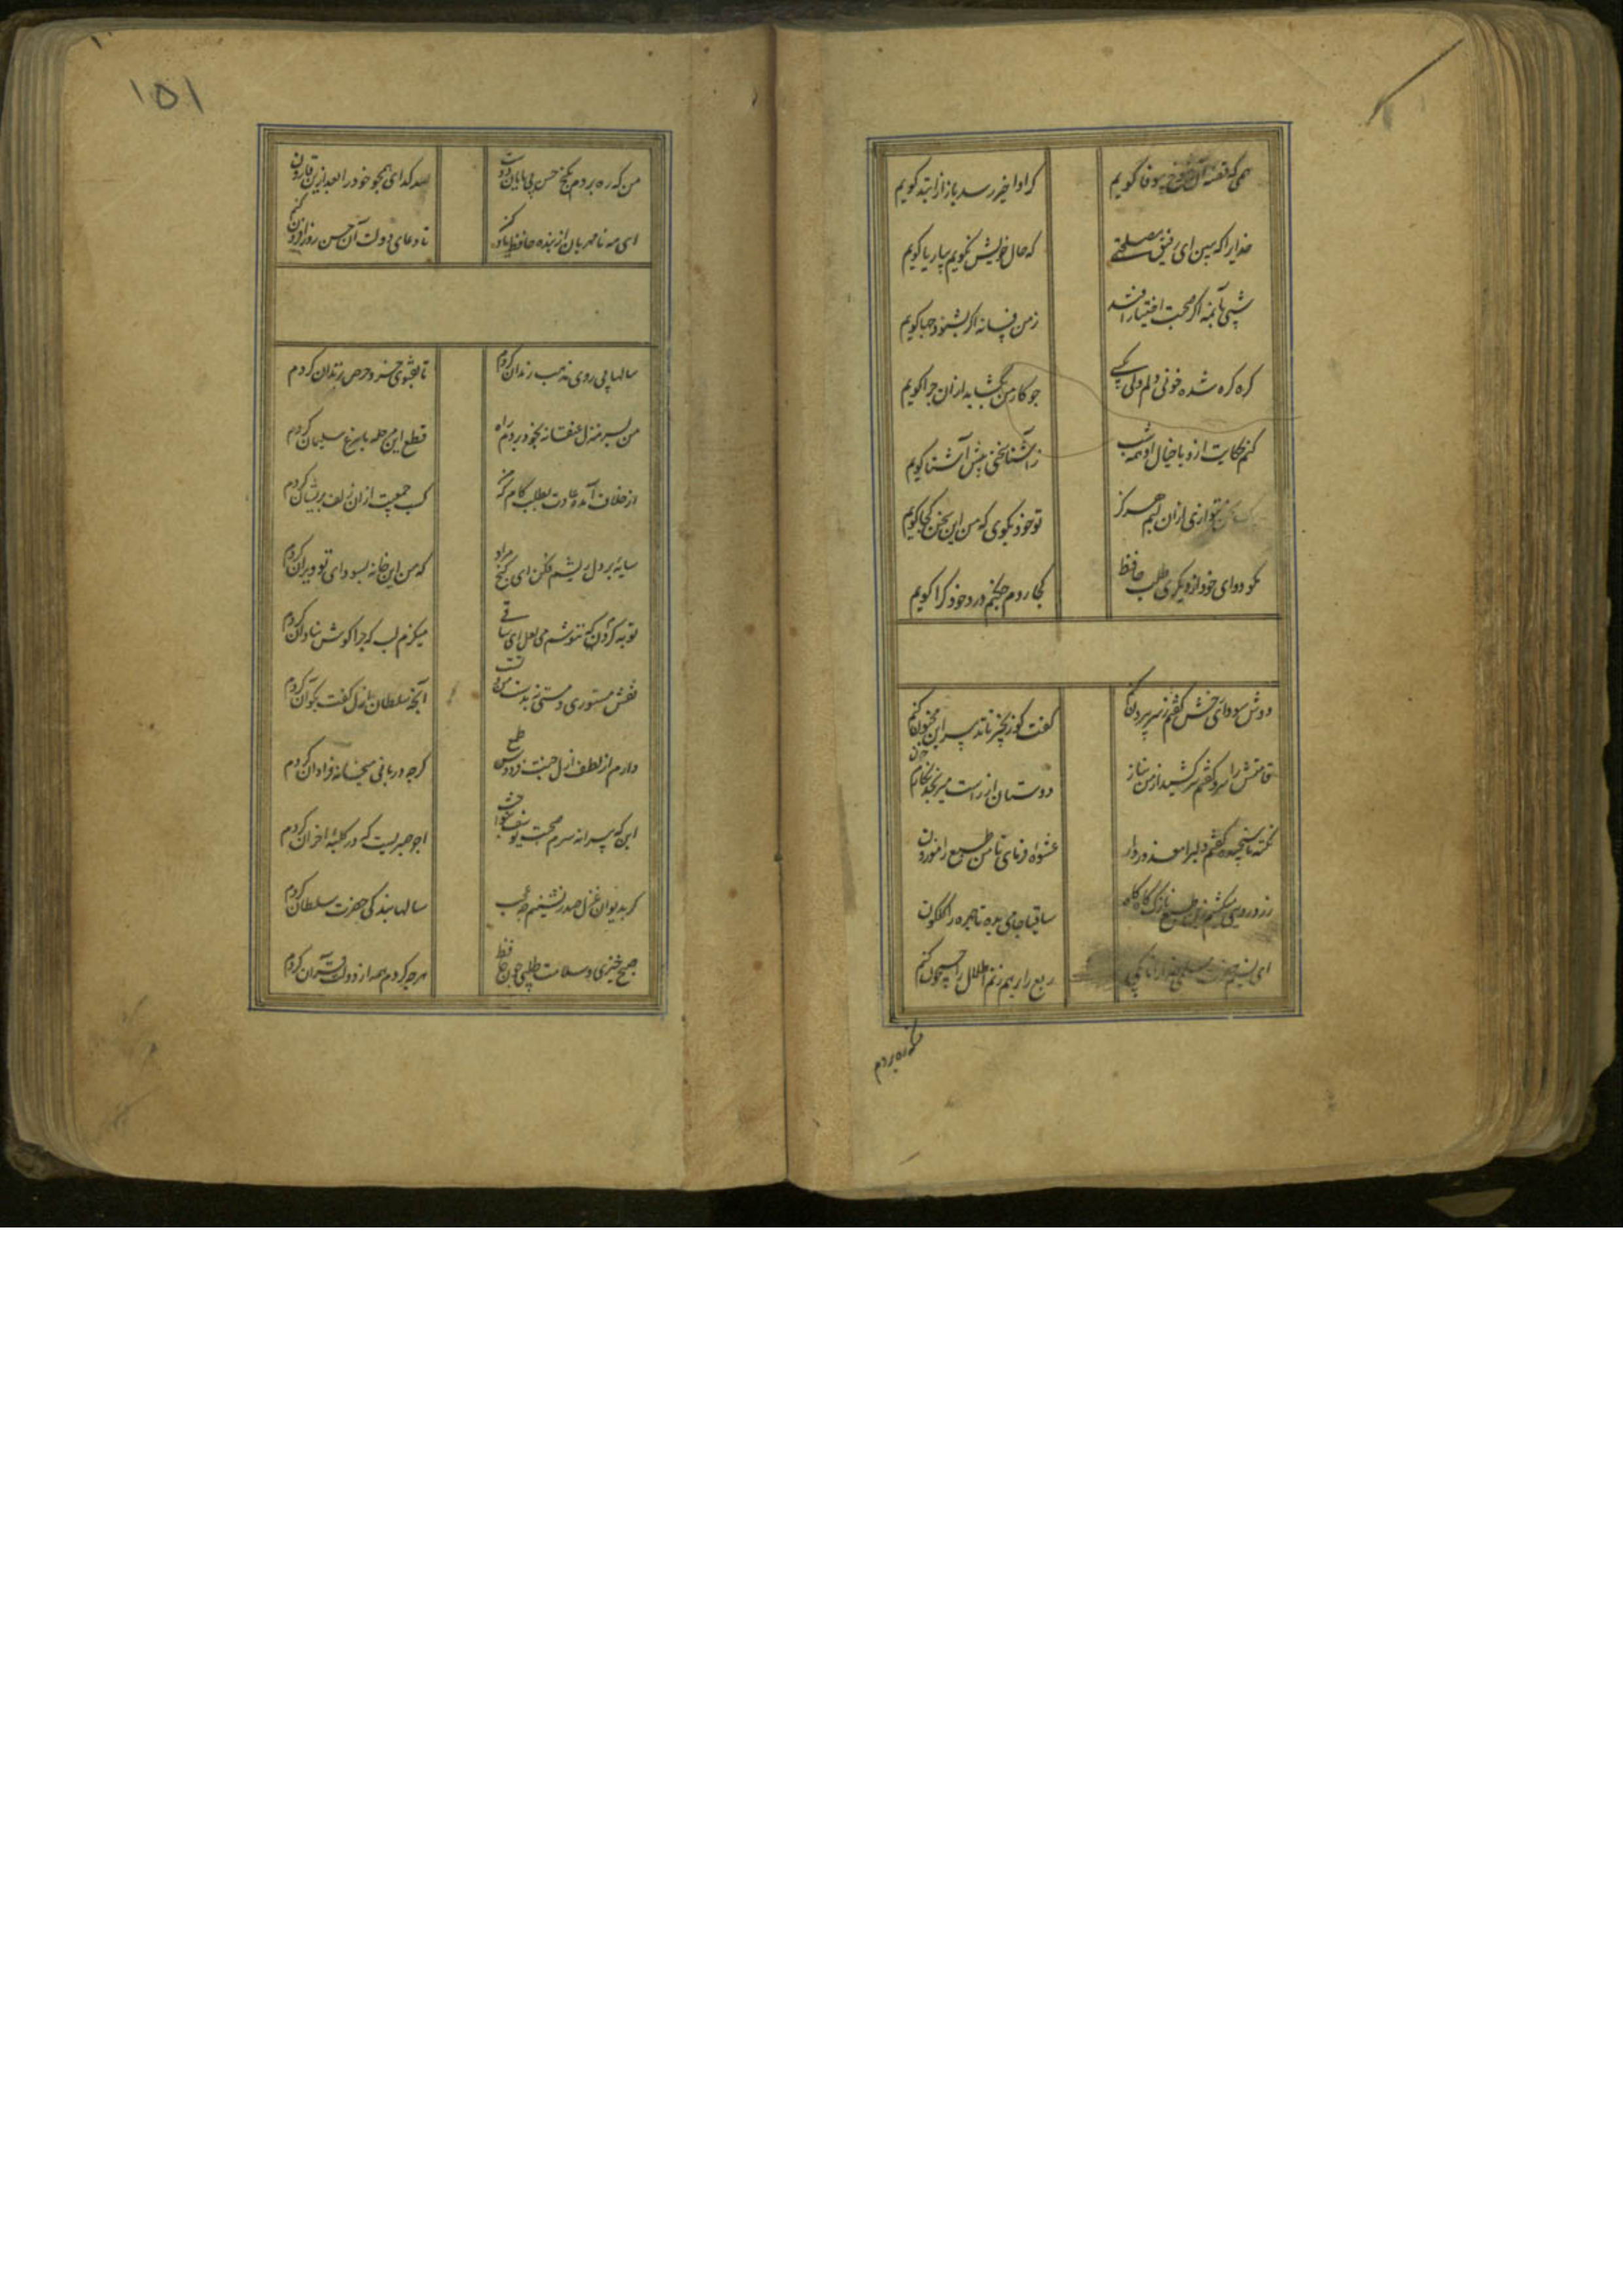 همی که قصه آن شوخ بیوفا گویم
کر اوا خیر رسد باز از ابتد گویم
خدایرا که ببین ای رفیق مصلحتی
که حال خویش نگویم بیار یا گویم
شبی بآن مه اگر صحبت اختیار افتد
زمن فسانه اگر بشنود جها گویم
گره گره شده خونی دلم ولی یکی
جو کار من نگشاید ازان چرا گویم
کنم حکایت ازو با خیال او همه شب
ز آشنا سخنی پیش آشنا گویم
نوازی ازان لبم هرگز
تو خود بگوی که من این سخن کجا گویم
مگو دوای خود از دیگری طلب حافظ
کجا روم چکنم درد خود کرا گویم
دوش سودای رخش گفتم ز سر بیرون کنم
گفت کو زنجیر تا تدبیر این مجنون کنم
قامتش را سرو گفتم سر کشید از من بناز
دوستان از راست میرنجد نگارم چون کنم
نکته ناسنجیده گفتم دلبرا معذور دار
عشوه فرمای تا من طبع را موزون
زرد رویی میکشم زان طبع نازک گاه گاه
ساقیا جامی بده تا چهره را گلگون
ای نسیم منزل لیلی خدا را تا بکی
ربع را برهم زنم اطلال را جیحون کنم
منکه ره بردم
۱۵۱
من که ره بردم بگنج حسن بی پایان دوست
صد گدای همچو خود را بعد ازین قارون کنم
ای مه نامهربان از بنده حافظ یاد کن
تا دعای دولت آن حسن روز افزون کنم
سالها پی روی مذهب رندان کردم
تا بفتوی خرد حرص بزندان کردم
من بسر منزل عنقا نه بخود بردم راه
قطع این مرحله با مرغ سلیمان کردم
از خلاف آمد عادت بطلب کام که
کسب جمعیت ازان زلف پریشان کردم
سایه بر دل ریشم فکن ای گنج مراد
که من این خانه بسودای تو ویران کردم
توبه کردم که ننوشم می لعل ای ساقی
میگزم لب که چرا گوش بنادان کردم
نقش مستوری و مستی نه بدست من و تست
آنچه سلطان ازل گفت بکن آن کردم
دارم از لطف ازل جنت فردوس طمع
گرچه دربانی میخانه فراوان کردم
این که پیرانه سرم صحبت یوسف بنواخت
اجر صبریست که در کلبه احزان کردم
گر بدیوان غزل صدر نشینم چه عجب
سالها بندگی حضرت سلطان کردم
صبح خیزی و سلامت طلبی چون حافظ
هرچه کردم همه از دولت قرآن کردم